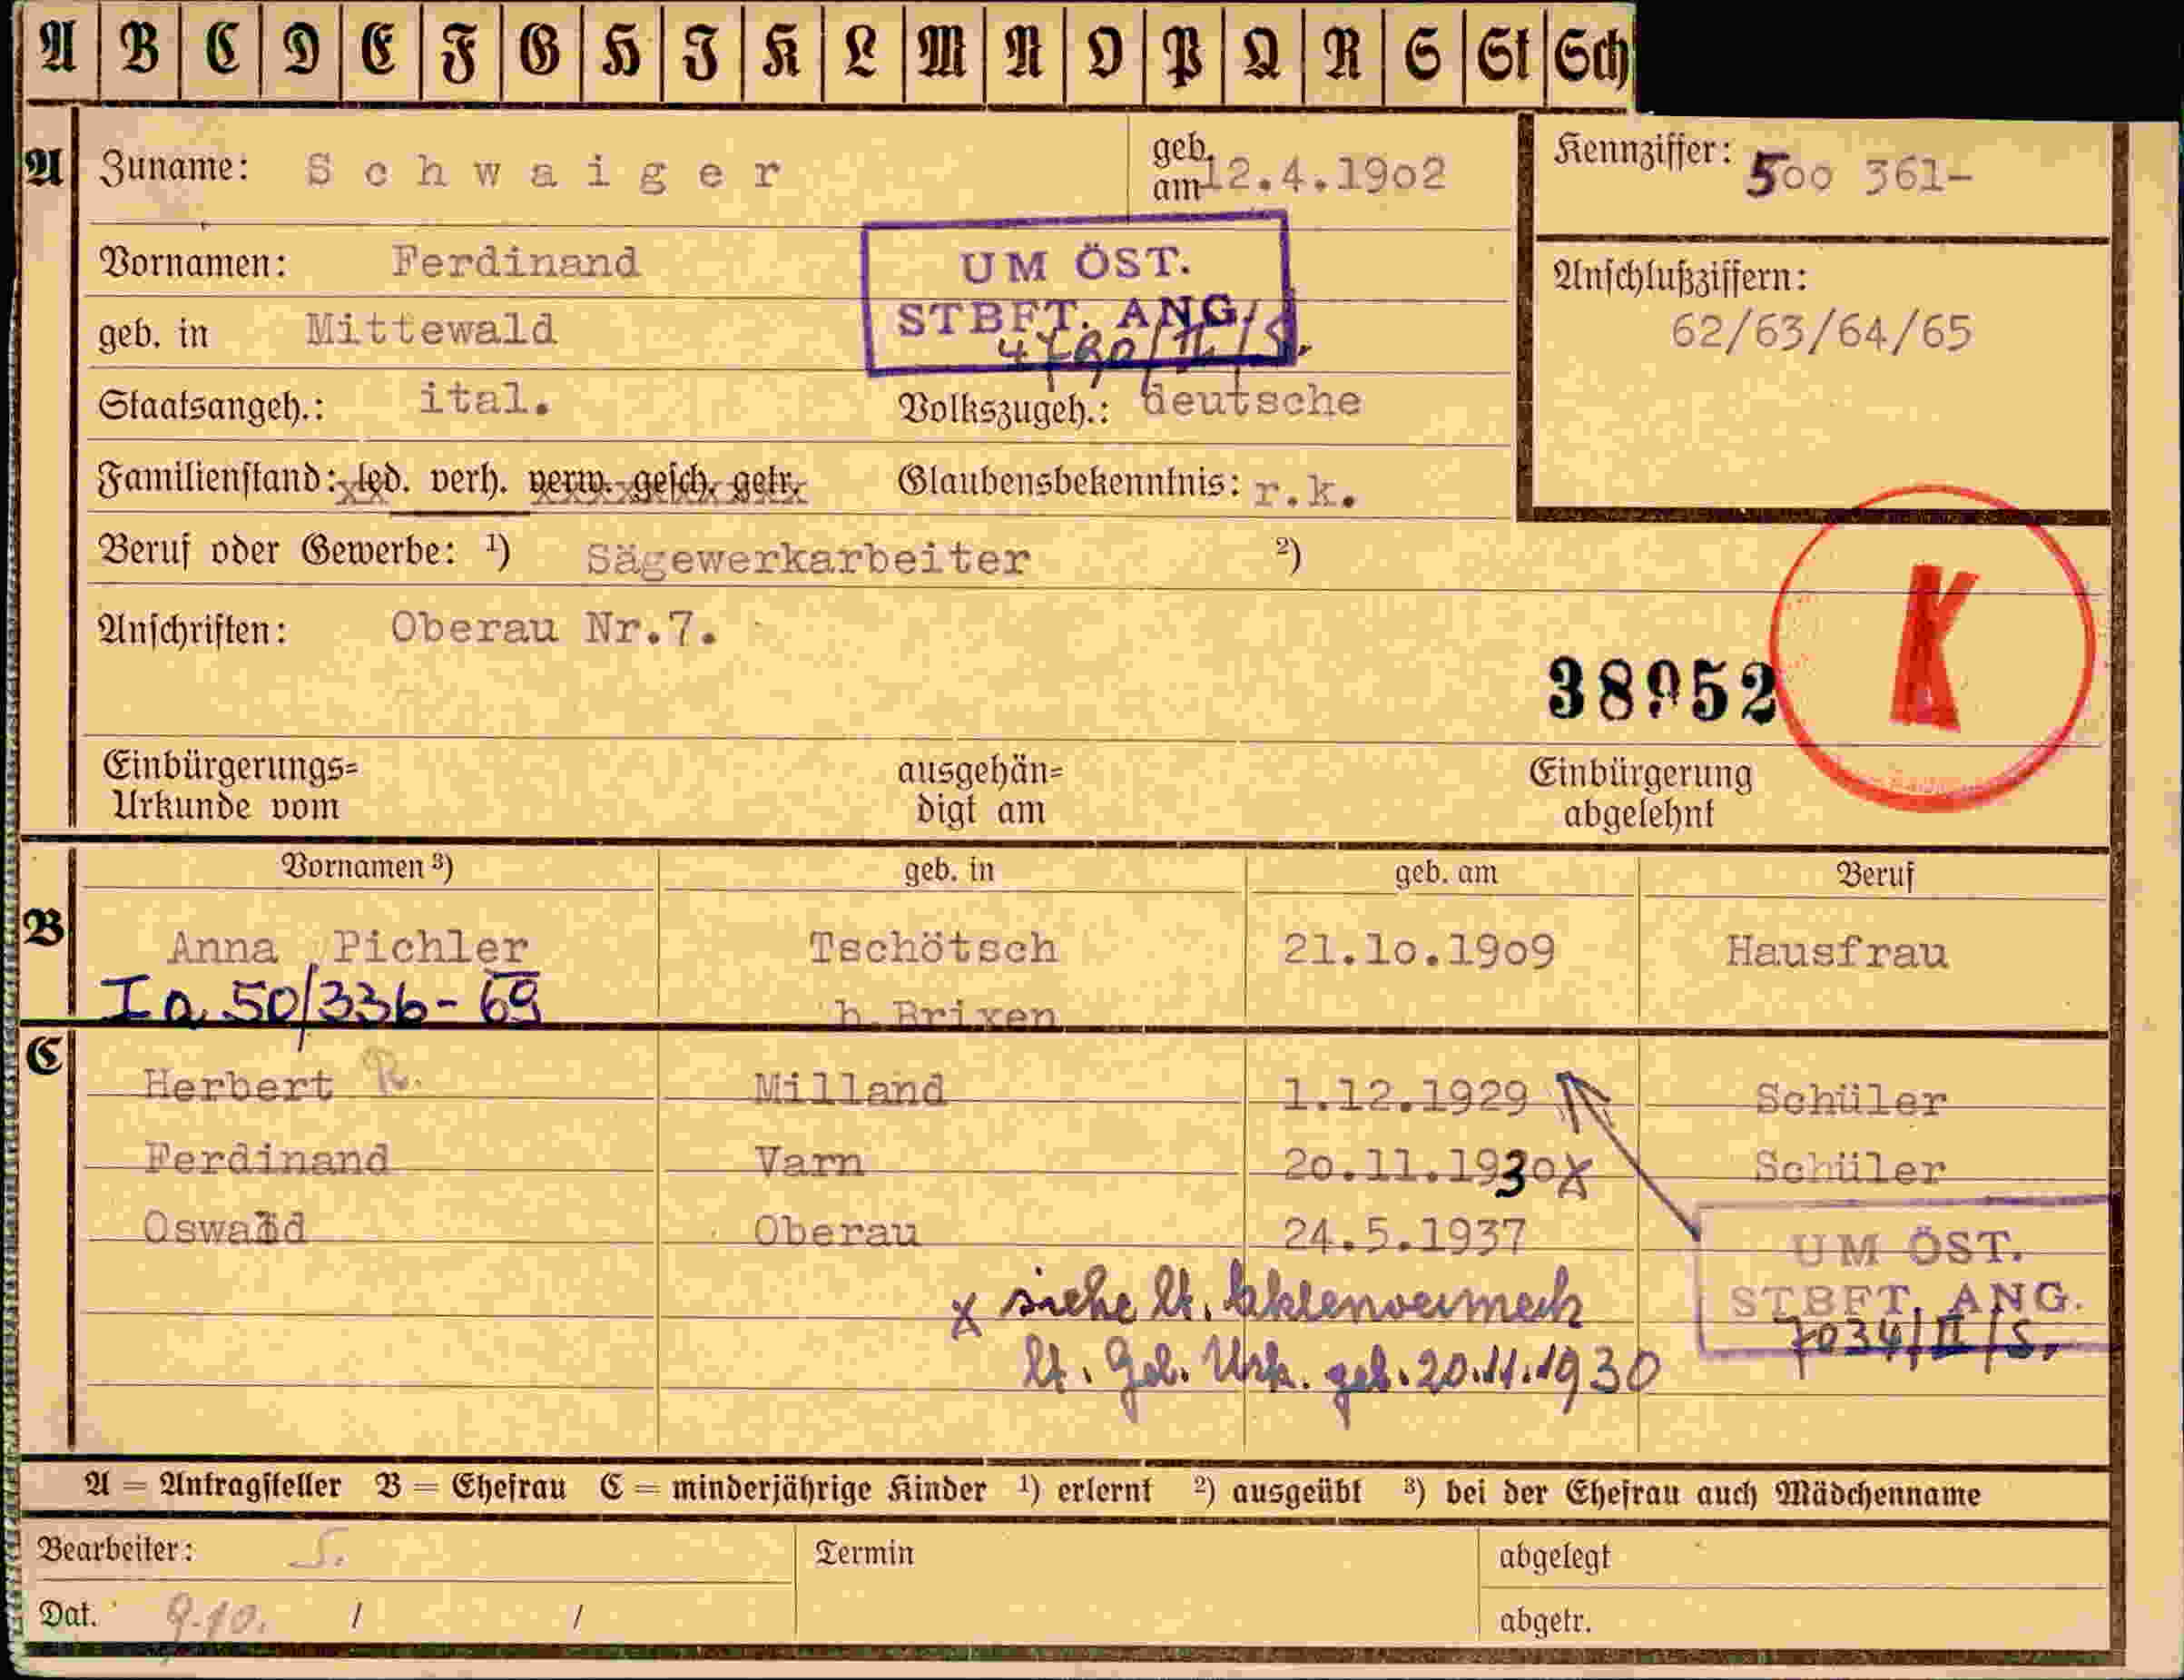 A B C D E F G H I K L M N O P Q R S St Sch
A Zuname: Schwaiger geb. am 12.4.1902 Kennziffer: 500 361-
Vornamen: Ferdinand UM ÖST. Anschlußziffern:
geb. in Mittewald STBFT. ANG. 62/63/64/65
Staatsangeh.: ital. Volkszugeh.: deutsche
Familienstand: led. verh. verw. gesch. getr. Glaubensbekenntnis: r.k.
Beruf oder Gewerbe: ¹) Sägewerkarbeiter ²)
K
Anschriften: Oberau Nr.7.
38952
Einbürgerungs= ausgehän= Einbürgerung
Urkunde vom digt am abgelehnt
Vornamen ³) geb. in geb. am Beruf
B Anna Pichler Tschötsch 21.10.1909 Hausfrau
I a 50/336-69 b. Brixen
C
Herbert R. Milland 1.12.1929 Schüler
Ferdinand Varn 20.11.1930 x Schüler
Oswald Oberau 24.5.1937
UM ÖST.
x siehe lt. STBFT. ANG.
7034/II/S.
lt. Geb. Urk. geb. 20.11.1930
A = Antragsteller B = Ehefrau C = minderjährige Kinder ¹) erlernt ²) ausgeübt ³) bei der Ehefrau auch Mädchenname
Bearbeiter: S. Termin abgelegt
Dat. 9.10. / / abgetr.